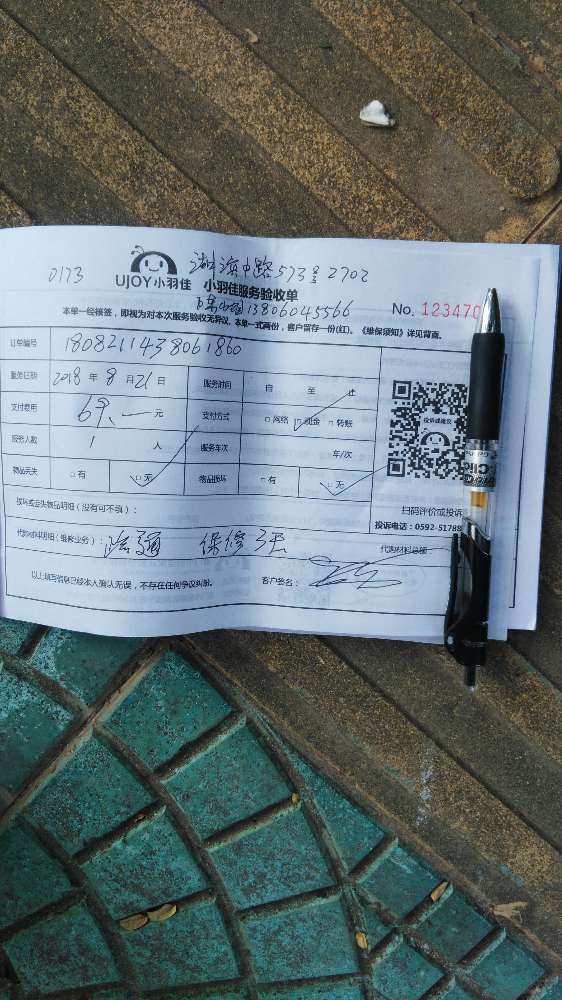 0173 湖滨中路573号2702
UJOY小羽佳 小羽佳服务验收单
13806045566
No. 123470
本单一经核签，即视为对本次服务验收无异议，本单一式两份，客户留存一份(红)。《维保须知》详见背面。
订单编号 1808211438061860
服务日期 2018 年 8 月 21 日 服务时间 自 至 止
支付费用 元 支付方式 □网络 □现金 □转账
服务人数 1 人 服务车次 车/次
物品丢失 □有 □无 物品损坏 □有 □无
投诉或建议
扫码评价或投诉
投诉电话：0592-51788
损坏或丢失物品明细（没有可不填）：
代购材料明细（维修业务）： 疏通 保修 3天 代购材料总额
以上填写信息已经本人确认无误，不存在任何争议纠纷。 客户签名：